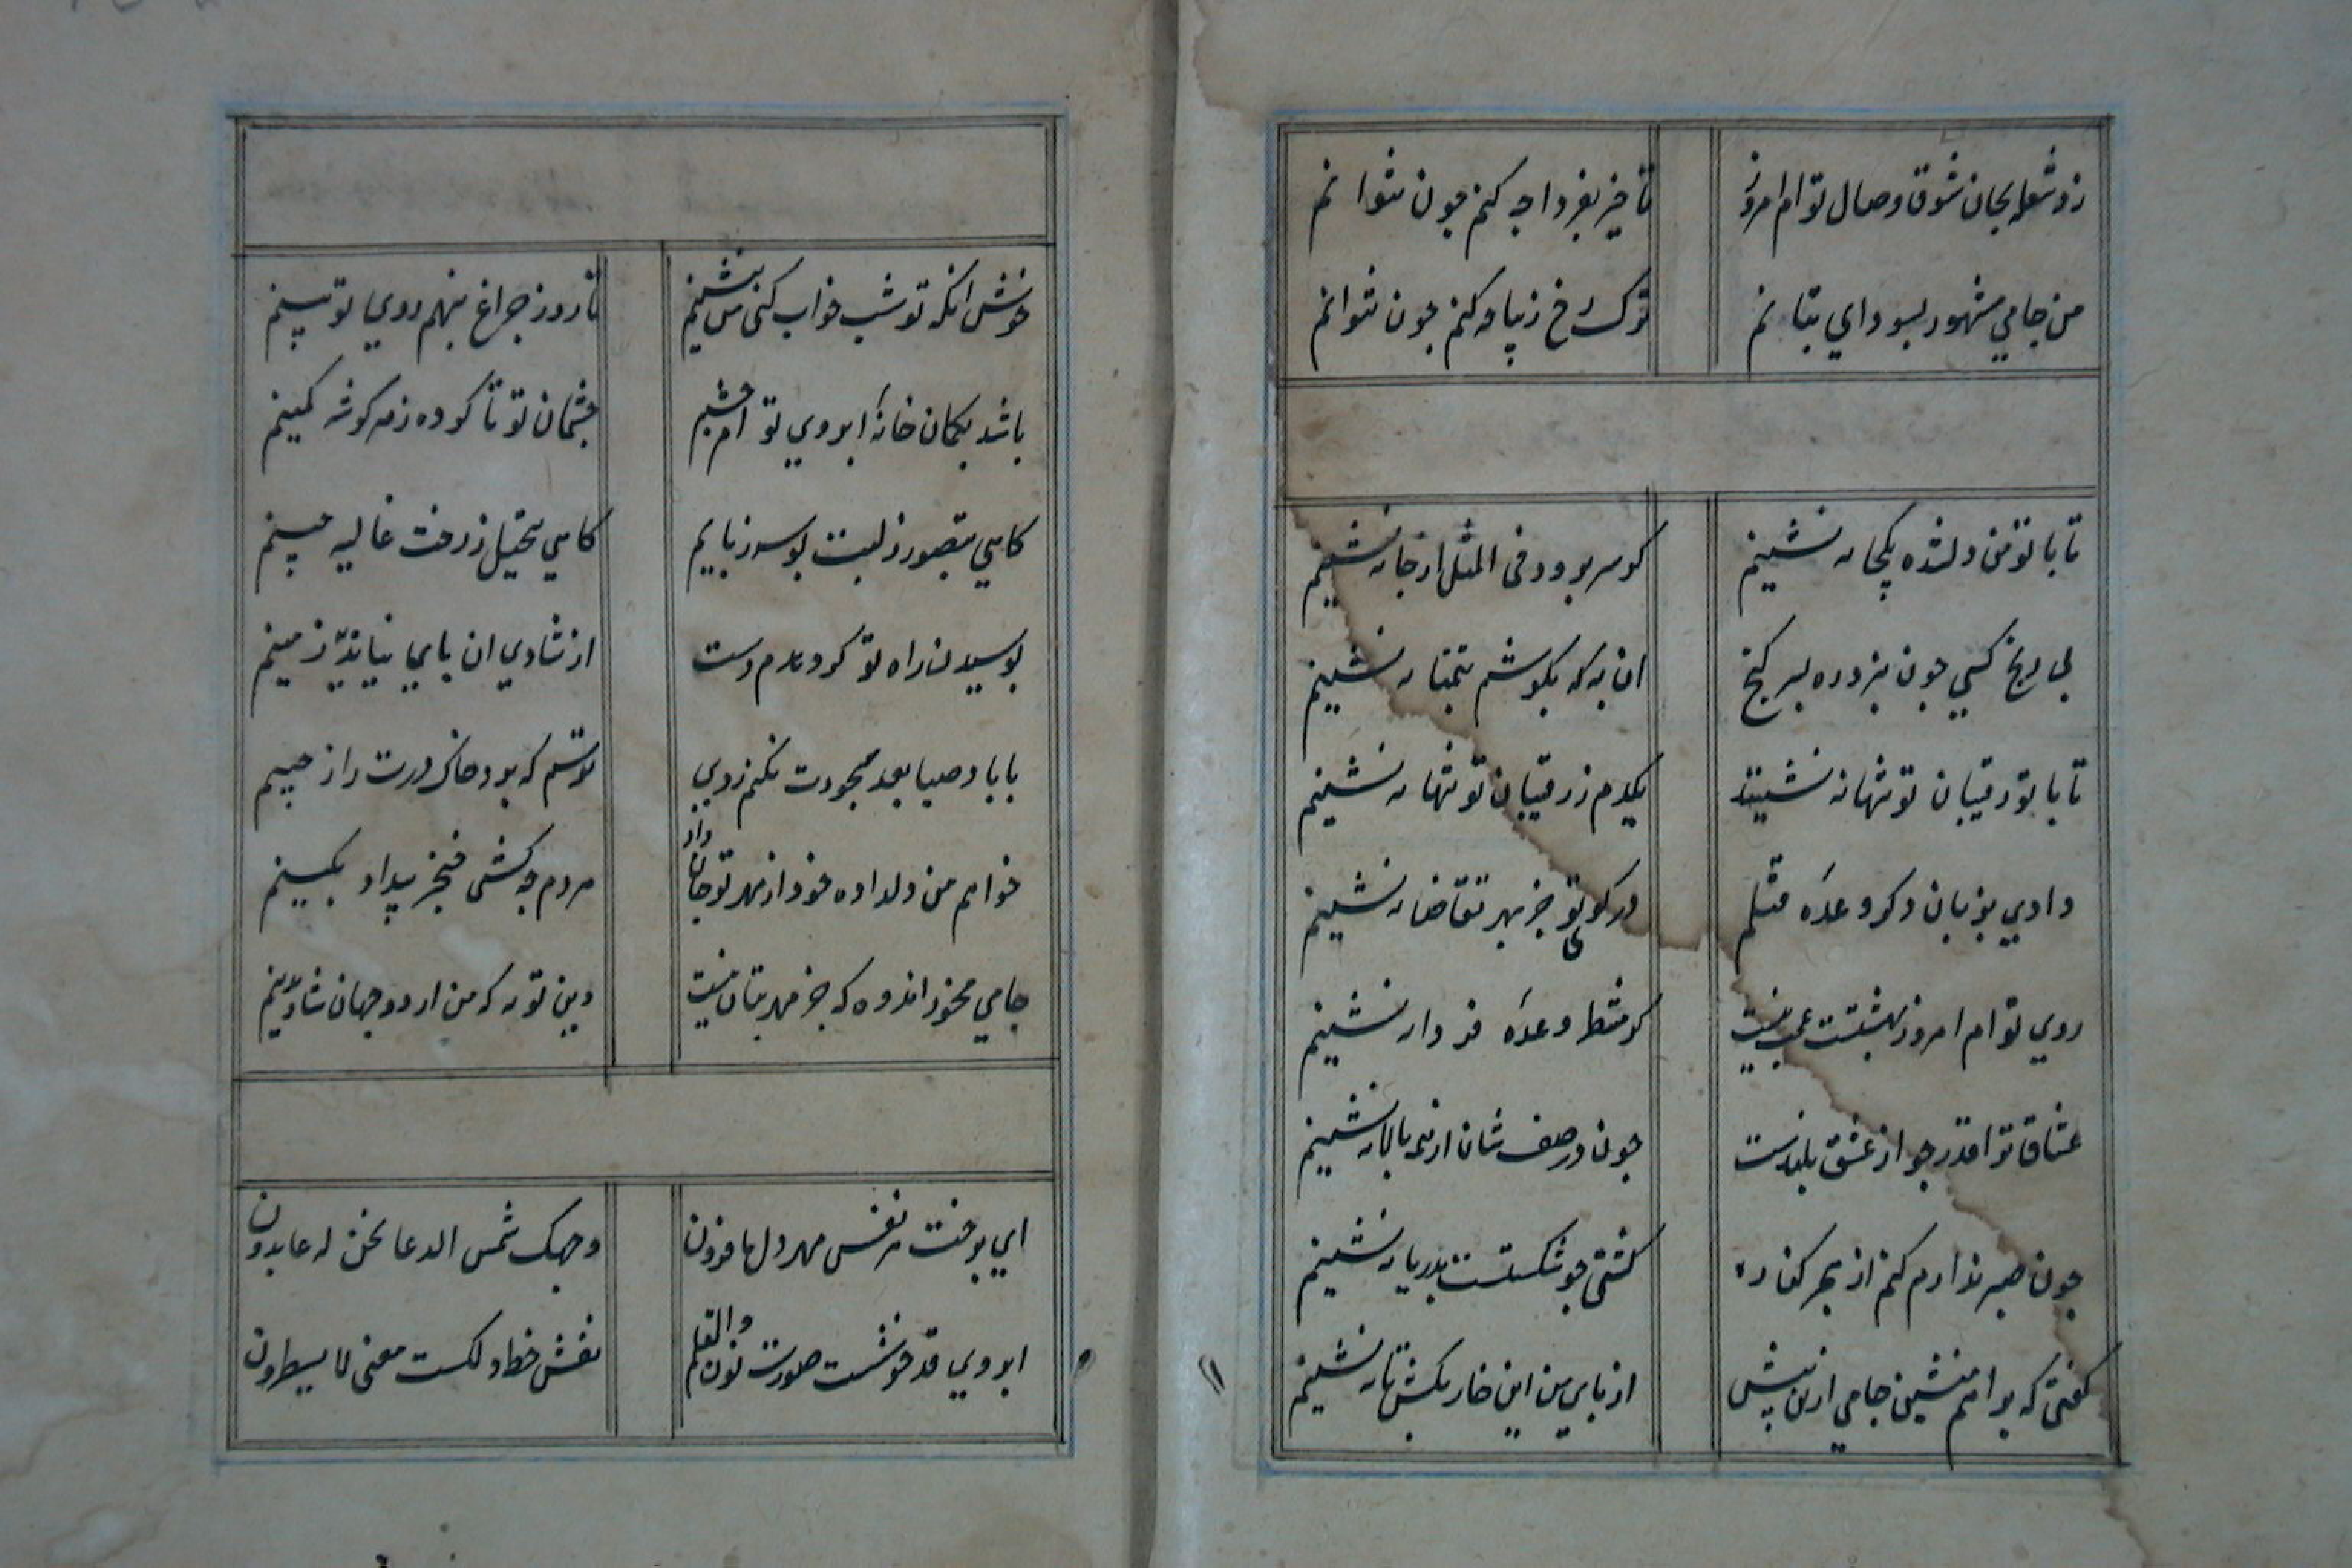 زد شعله بجان شوق وصال توام امروز تاخیر بفردا چه کنم چون نتوانم
من جامی مشهور بسودای بتانم ترک رخ زیبا چه کنم چون نتوانم
تا با تو من دلشده یکجا نه نشینم کر سر برود فی المثل از جا نه نشینم
بی رنج کسی چون نبرد ره بسر کنج ان به که بکوشم بتمنا نه نشینم
تا با تو رقیبان تو تنها نه نشینند یکدم ز رقیبان تو تنها نه نشینم
دادی بزبان دکر وعده قتلم در کوی تو جز بهر تقاضا نه نشینم
روی توام امروز بهشتست عجب نیست کر منتظر وعده فردا نه نشینم
عشاق ترا قدر چو از عشق بلندست چون در صف شان از همه بالا نه نشینم
چون صبر ندارم کنم از بحر کناره کشتی چو شکستست بدریا نه نشینم
کفتی که برامم منشین جامی ازین پیش از پای من این خار بکش تا نه نشینم
خوش انکه تو شب خواب کنی من بنشینم تا روز چراغ بنهم روی تو بینم
باشد بکمان خانه ابروی تو ام چشم چشمان تو ناکرده ز هر کوشه کمینم
کاهی بتصور ز لبت بوسه ربایم کاهی بتخیل ز رخت غالیه چینم
بوسیدن راه تو کر دهدم دست از شادی ان پای نیاید بزمینم
با باد صبا بعد سجودت نکنم روی ترسم که برد خاک درت را ز جبینم
خواهم من دلداده خود از مهر تو جان داد هر دم چه کشی خنجر بیداد بکینم
جامی مخور اندوه که جز مهر بتان نیست دین تو به که من از دو جهان شاد بدینم
ای برخت هر نفس مهر دل ما فزون وجهک شمس الدعا نحن له عابدون
ابروی قد خوشست صورت نون والقلم نقش خط دلکست معنی ما یسطرون